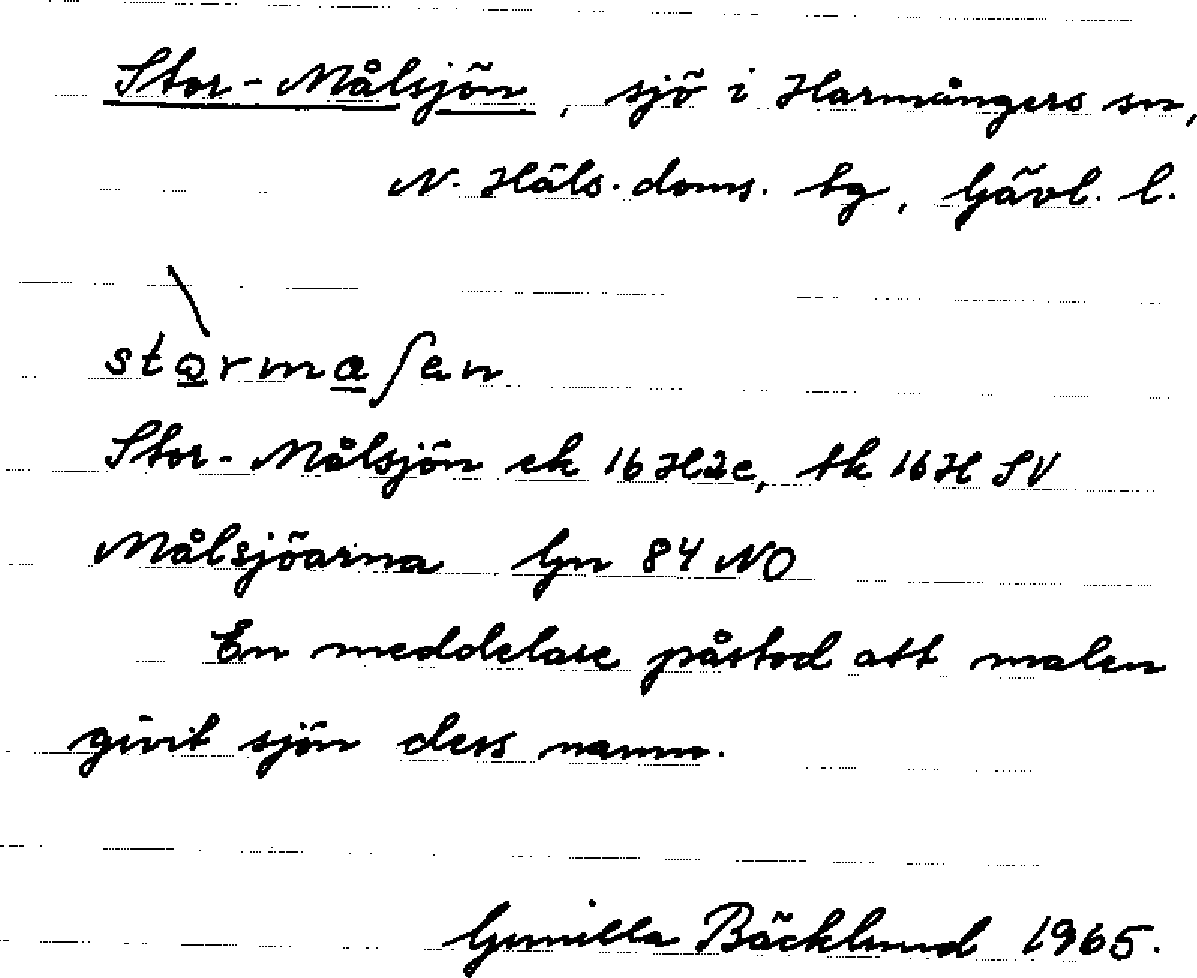 Stor-Målsjön, sjö i Harmångers sn,
N. Häls. doms. tg, Gävl. l.
stɷrmaʃen
Stor-Målsjön ek 16H2c, tk 16H SV
Målsjöarna Gn 84 NO
En meddelare påstod att malen
givit sjön dess namn.
Gunilla Bäcklund 1965.